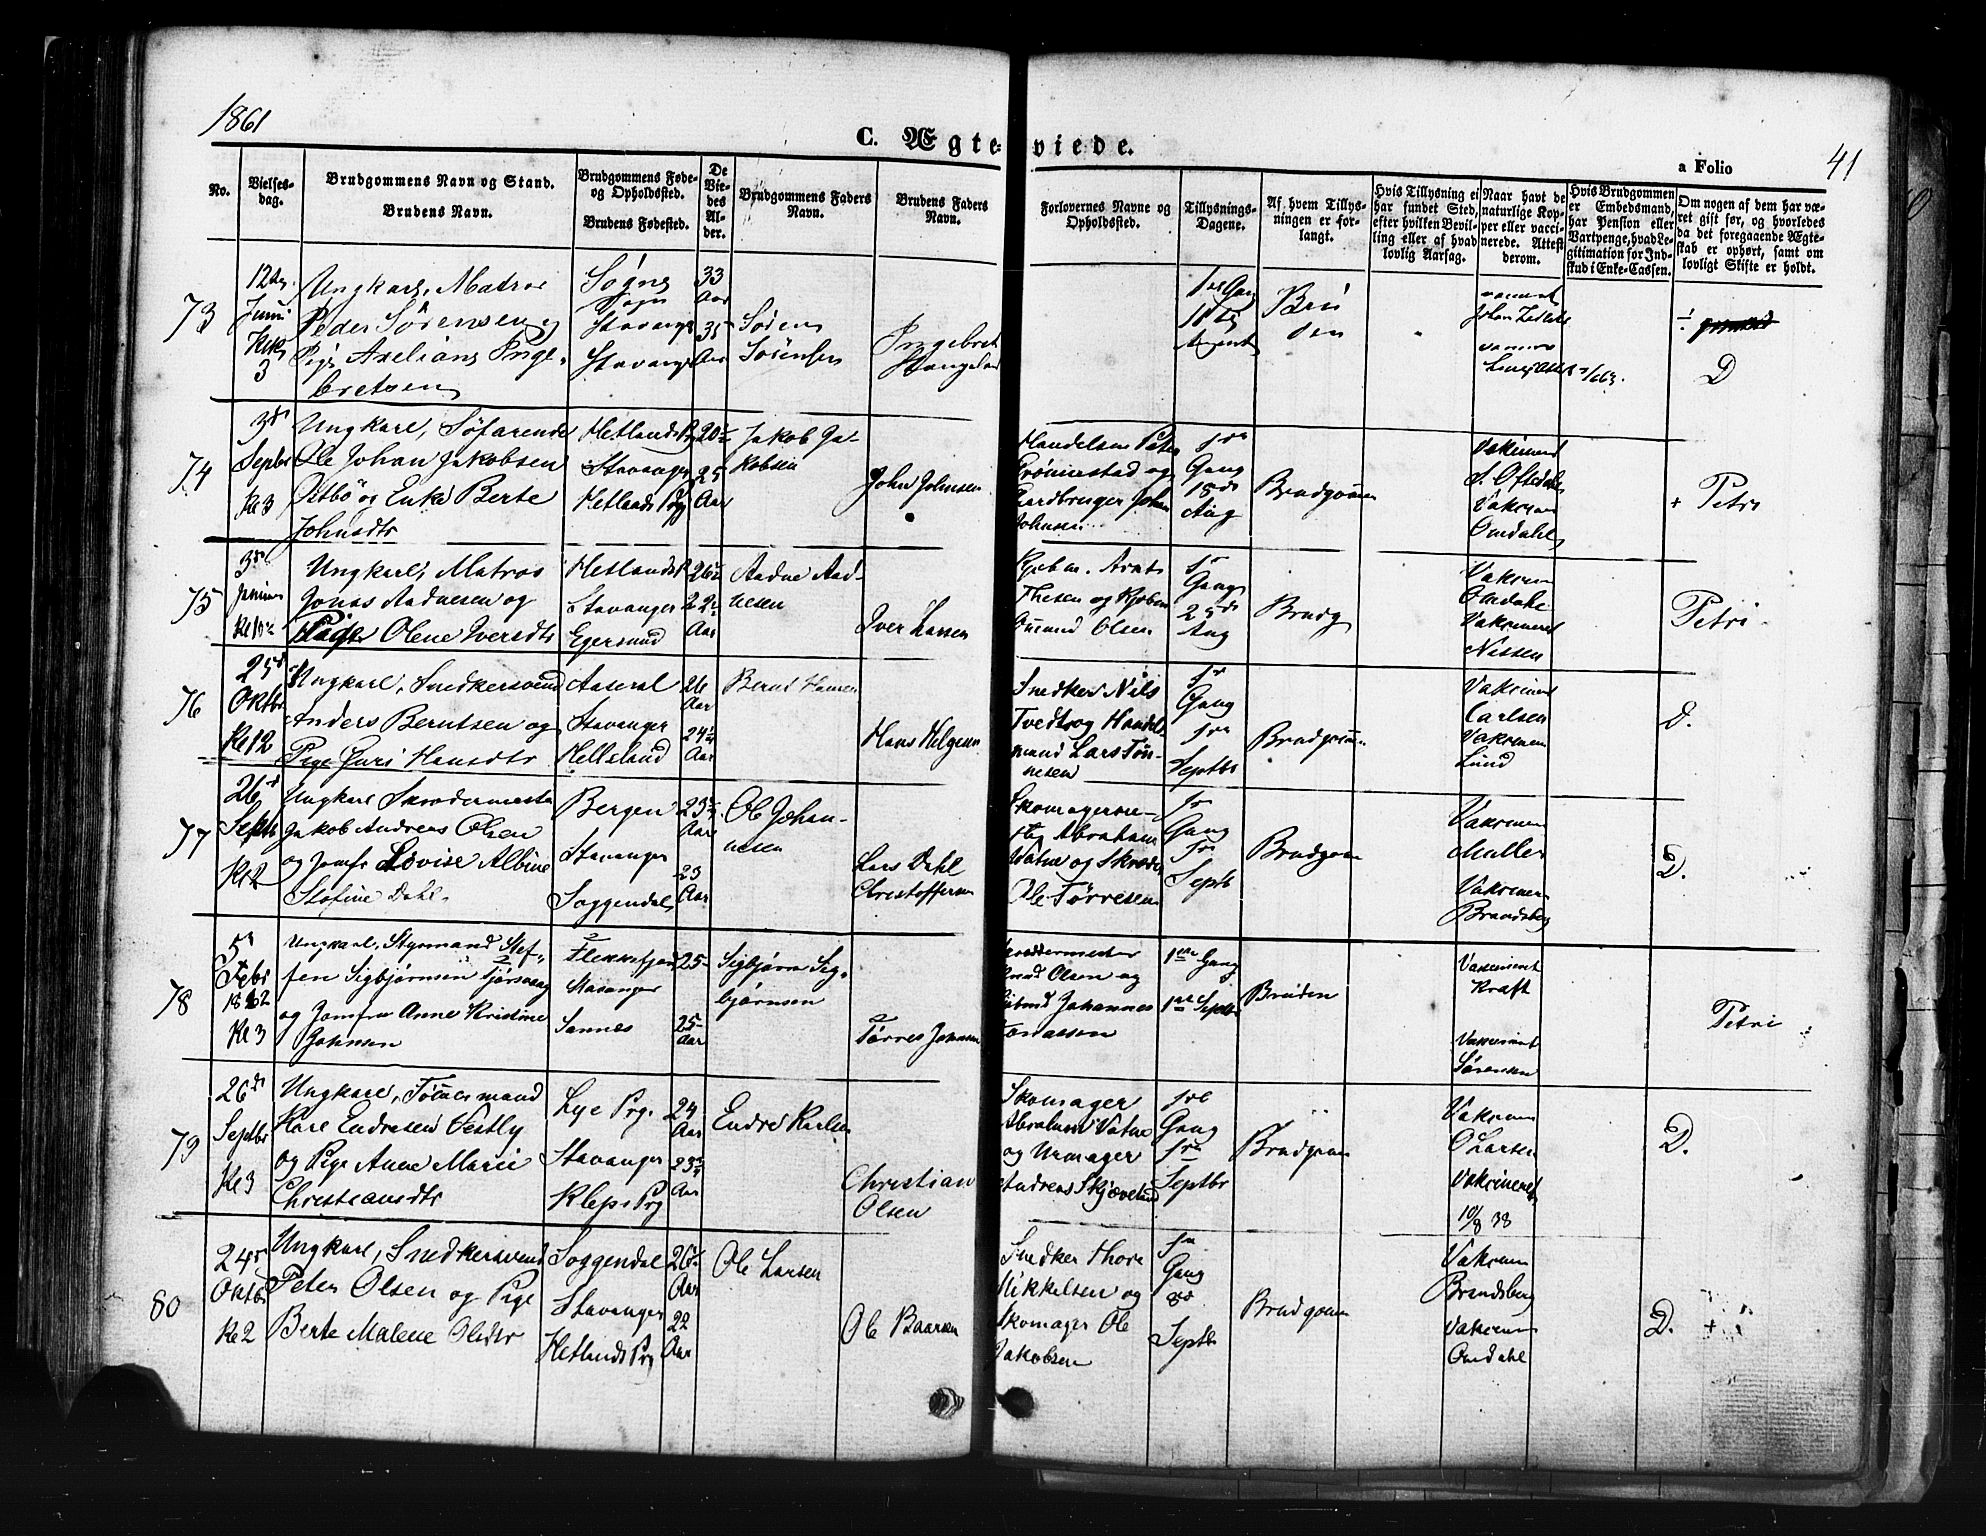 1861
C. Ægteviede.
a Folio
41
No.
Vielses-
dag.
Brudgommens Navn og Stand.
Brudens Navn.
Brudgommens Føde-
og Opholdssted.
Brudens Fødested.
De
Vie-
des
Al-
der.
Brudgommens Faders
Navn.
Brudens Faders
Navn.
Forlovernes Navne og
Opholdssted.
Tillysnings-
Dagene.
Af hvem Tillys-
ningen er for-
langt.
Hvis Tillysning ei
har fundet Sted,
efter hvilken Bevil-
ling eller af hvad
lovlig Aarsag.
Naar havt de
naturlige Kop-
per eller vacci-
nerede. Attest
derom.
Hvis Brudgommen
er Embedsmand,
har Pension eller
Vartpenge, hvad Le-
gitimation for Ind-
skud i Enke-Cassen.
Om nogen af dem har væ-
ret gift før, og hvorledes
da det foregaaende Ægte-
skab er ophørt, samt om
lovligt Skifte er holdt.
73
Juni
3
Ungkarl, Matros
Peder Sörensen og
Pige Axeliane Inge-
bretsen
Sogn
Stavanger
Stavanger
33
Aar
35
Aar
Sören
Sörensen
Ingebret
Brü
den
D
74
3d
Septbr
Kl 3
Ungkarl, Söfarende
Ole Johan Jakobsen
og Enke Berte
Johnsdtr
Hetlands P
Stavanger
Hetlands Pg
25
Aar
Jakob Ja-
kobsen
John Johnsen
Gang
18de
Aug
Brudgommen
Vakcineret
Vakcineret
Omdahl
+ Petri
75
3d
Ungkarl, Matros
Jonas Aadnesen og
Pige Olene Iversdtr
Hetlands P
Stavanger
Egersund
Aar
Aadne Aad-
nesen
Iver Larsen
Thesen og Kjöbm
Omund Olsen
Gang
25de
Aug
Brudg
Vakcineret
Omdahl
Vakcineret
Nissen
Petri
76
25d
Oktbr
Kl 12
Ungkarl, Snedkersvend
Anders Berntsen og
Pige Guri Hansdtr
Aaseral
Stavanger
Hellsland
26
Aar
24½
Aar
Bernt Hansen
Hans Helgesen
Snedker Nils
Tvedt og Handels
mand Lars Tön-
nesen
Gang
Septbr
Brudgommen
Vakcineret
Carlsen
Vakcineret
Lund
D.
77
26d
Septbr
Kl 2
Ungkarl Skrædermester
Jakob Andreas Olsen
og Jomfr Lovise Albine
Stofine Dahl.
Bergen
Stavanger
Soggendal
Aar
23
Aar
Ole Johan-
nesen
Lars Dahl
Christoffersen
Skomagerme-
ster Abraham
Vatne og Skræder
Ole Törresen
Gang
Septb
Brudgom
Vakcineret
Müller
Vakcineret
Brandsberg
D.
78
5d
Febr
1862
Kl 3
Ungkarl, Styrmand Stef-
fen Sigbjørnsen Tjørsvaag
og Jomfru Anne Kristine
Johnsen
Flekkefjord
Stavanger
Sannes
25
25
Aar
Sigbjørn Sig-
bjørnsen
Tørres Johnsen
Skrædermester
Knud Olsen og
Johannes
Tønnessen
1ste Gang
1ste Septbr
Bruden
Vakcineret
Kraft
Vakcineret
Sørensen
Petri
79
26de
Septbr
Kl 3
Ungkarl, Tömmermand
Kare Endresen Vestly
og Pige Anne Marie
Christiansdtr
Lye Prg.
Stavanger
Kleps Prg
24
Aar
Aar
Endre Karlsen
Christian
Olsen
Skomager
Abraham Vatne
og Urmager
Andreas Skjæveland
Gang
Septbr
Brudgom
Vakcineret
O Larsen
Vakcineret
10/8 38
D.
80
24d
Oktbr
Kl 2
Ungkarl, Snedkersvend
Peter Olsen og Pige
Berte Malene Olsdtr
Soggendal
Stavanger
Hetlands Prg
26½
Aar
22
Aar
Ole Larsen
Ole Baarsen
Snedker Thore
Mikkelsen og
Skomager Ole
Jakobsen
Gang
8de
Septb
Brudgommen
Vakcineret
Brandsberg
Vakcineret
Omdahl
D. +